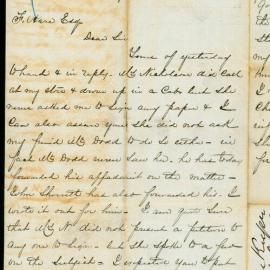 F. Ware Esq
Dear Sir
Yours of yesterday
to hand & in reply. Mrs Nicholson did call
at my store & drove up in a Cab but she
never asked me to sign any paper & I
Can also assure you she did not ask
my friend Mr Dodd to do so either - in
fact Mr Dodd never saw her. he has today
forwarded his affadavit on the matter -
John Sherritt has also forwarded his - I
wrote it out for him - I am quite Sure
that Mrs N did not present a petition to
any one to sign - but she spoke to a few
on the subject - I expected you to put